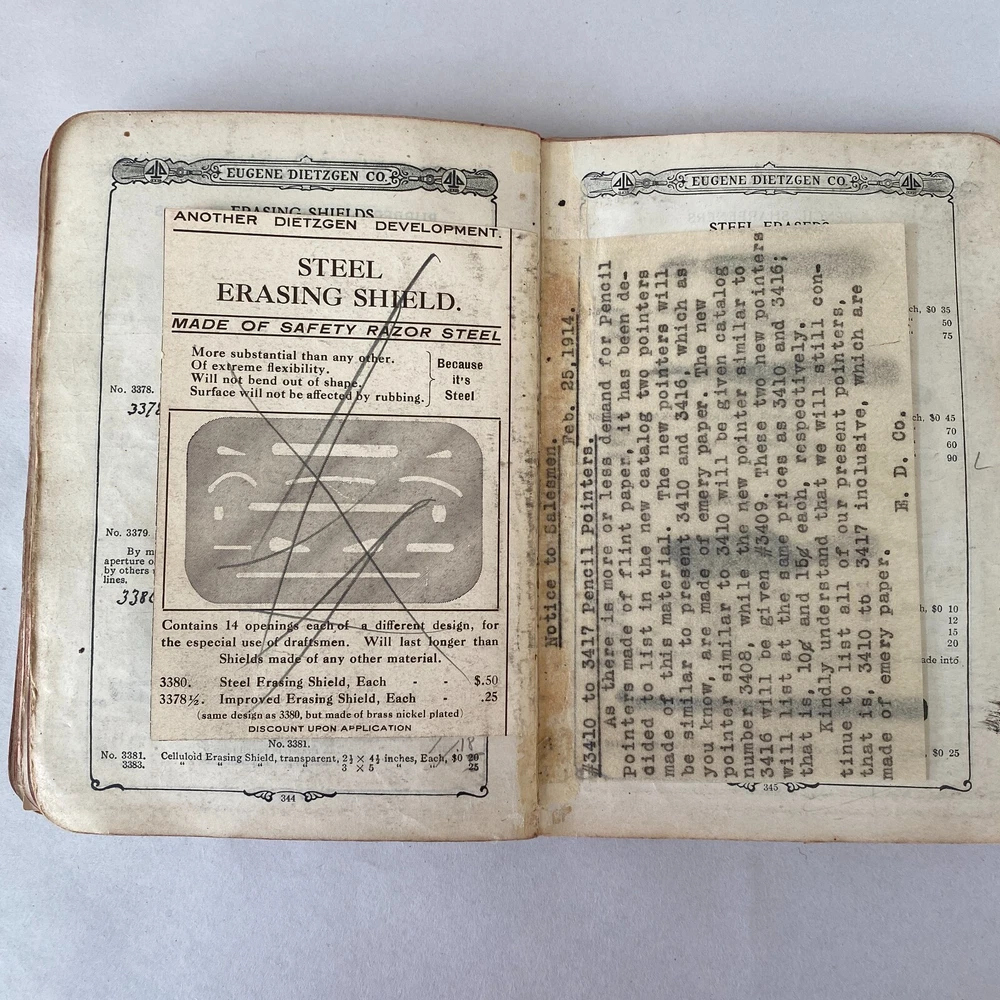 EUGENE DIETZGEN CO.
ERASING SHIELDS
ANOTHER DIETZGEN DEVELOPMENT.
STEEL
ERASING SHIELD.
MADE OF SAFETY RAZOR STEEL
More substantial than any other.
Of extreme flexibility.
Will not bend out of shape.
Surface will not be affected by rubbing.
Because
it's
Steel
No. 3378.
3378
No. 3379.
By m
aperture o
by others
lines.
Contains 14 openings each of a different design, for
the especial use of draftsmen. Will last longer than
Shields made of any other material.
3380. Steel Erasing Shield, Each - - $.50
3378½. Improved Erasing Shield, Each - .25
(same design as 3380, but made of brass nickel plated)
DISCOUNT UPON APPLICATION
No. 3381.
No. 3381. Celluloid Erasing Shield, transparent, 2½ × 4½ inches, Each, $0 20
3383. " " " " 3 × 5 " " 25
344
EUGENE DIETZGEN CO.
STEEL ERASERS
Notice to Salesmen.
Feb. 25, 1914.
#3410 to 3417 Pencil Pointers.
As there is more or less demand for Pencil
Pointers made of flint paper, it has been de-
cided to list in the new catalog two pointers
made of this material. The new pointers will
be similar to present 3410 and 3416, which as
you know, are made of emery paper. The new
pointer similar to 3410 will be given catalog
number 3408, while the new pointer similar to
3416 will be given #3409. These two new pointers
will list at the same prices as 3410 and 3416;
that is, 10¢ and 15¢ each, respectively.
Kindly understand that we will still con-
tinue to list all of our present pointers,
that is, 3410 to 3417 inclusive, which are
made of emery paper.
E. D. Co.
ch, $0 35
50
75
ch, $0 45
70
60
90
h, $0 10
12
15
20
ade into
$0 25
345